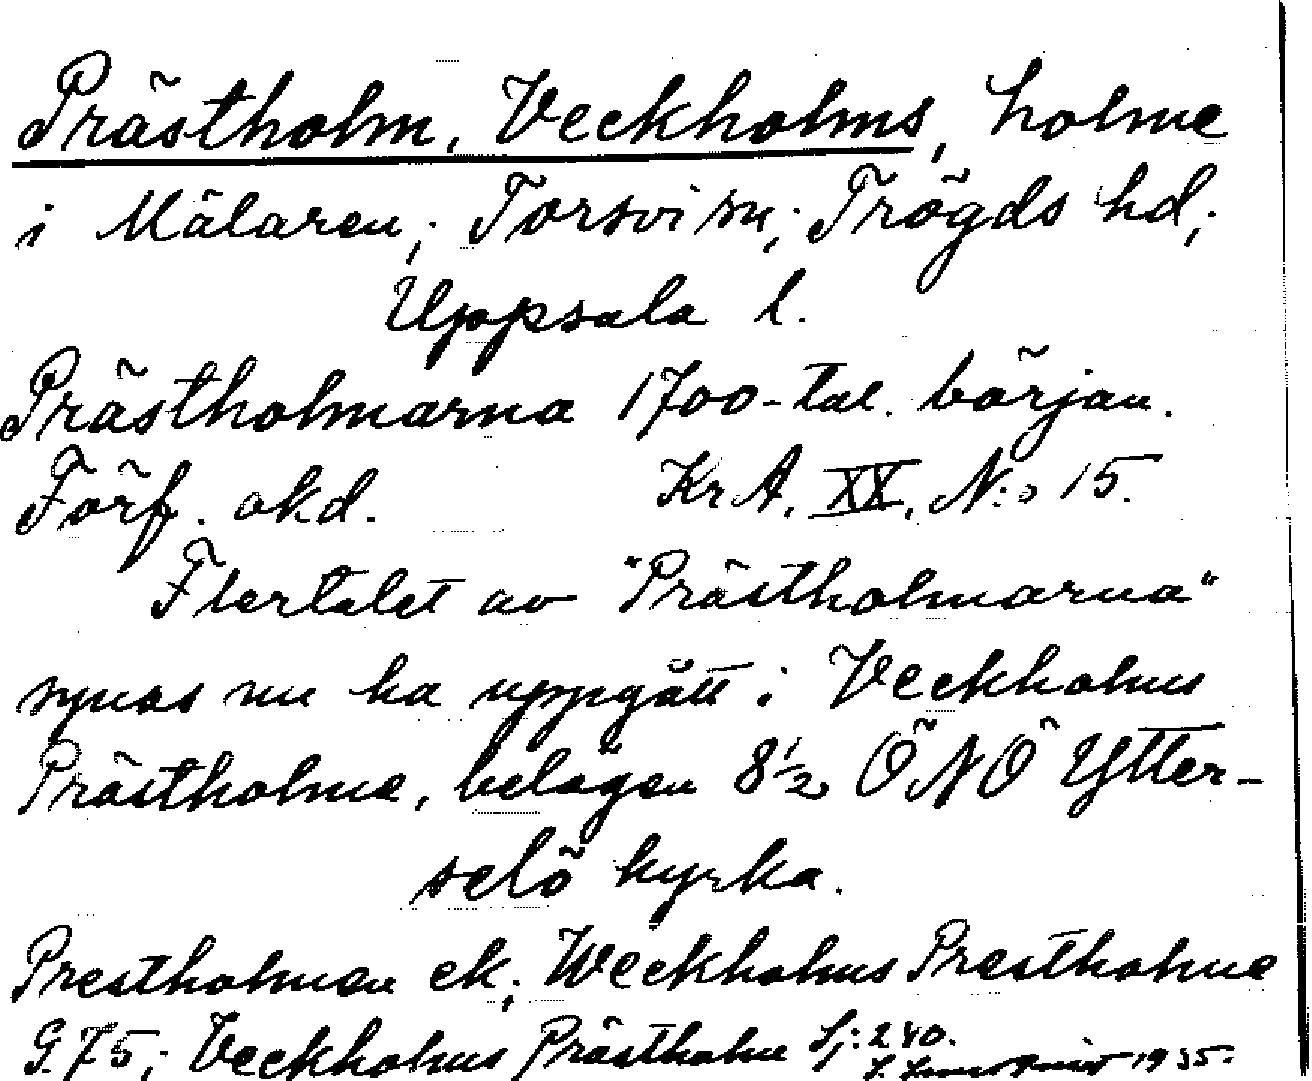 Prästholm, Veckholms, holme
i Mälaren; Torsvi sn; Trögds hd;
Uppsala l.
Prästholmarna 1700-tal. början.
Förf. okd. KrA. XX. N:o 15.
Flertalet av "Prästholmarna"
synas nu ha uppgått i Veckholms
Prästholme, belägen 8½ ÖNÖ Ytter-
selö kyrka.
Prestholmen ek; Weckholms Prestholme
G.75; Veckholms Prästholm Sj: 240.
1935.